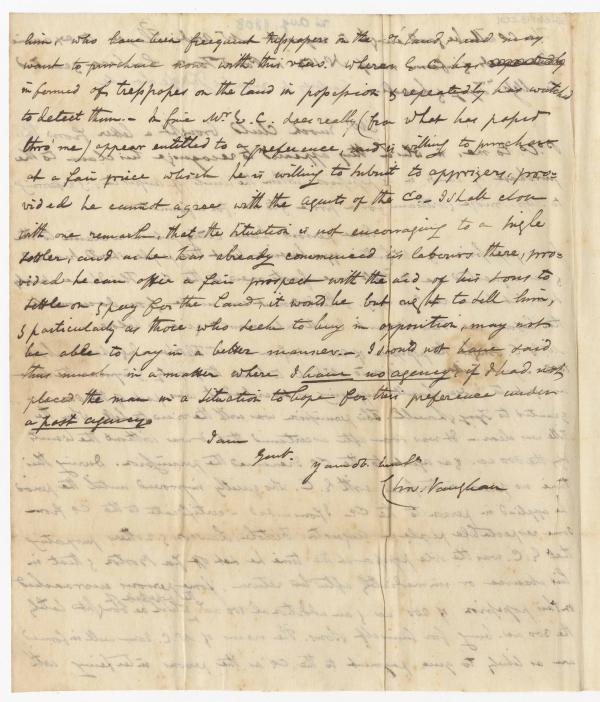 him who have been frequent trespassers on the Land, and may
want to purchase now with this view. Whereas E. C. has repeatedly
informed of trespasses on the Land in possession & repeatedly has watched
to detect them. – In fine Mr. E. C. does really (from what has passed
thro me) appear entitled to a preference, and is willing to purchase
at a fair price which he is willing to submit to apprizers, pro=
vided he cannot agree with the agents of the Co. – I shall close
with one remark, that the situation is not encouraging to a single
settler, and as he has already commenced his labours there, pro=
vided he can offer a fair prospect with the aid of his sons to
settle on & pay for the Land, it would be but right to sell him,
& particularly as those who seek to buy in opposition, may not
be able to pay in a better manner. – I would not have said
thus much in a matter where I have no agency, if I had not
placed the man in a situation to hope for this preference under
a past agency
I am
Gent.
Your ob.
Vaughan